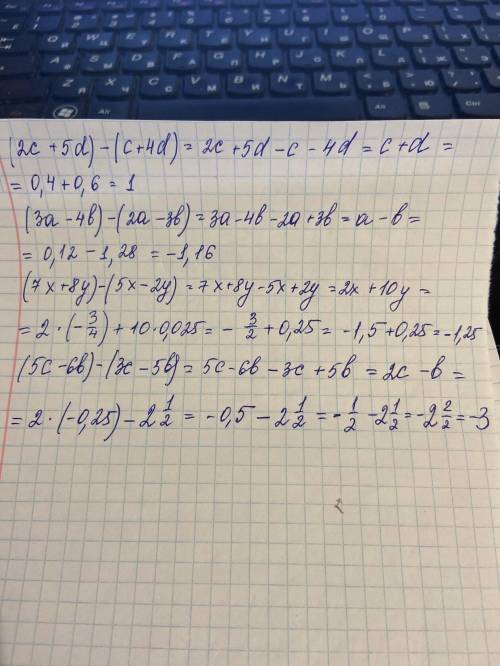 (2c + 5d) - (c + 4d) = 2c + 5d - c - 4d = c + d =
= 0,4 + 0,6 = 1
(3a - 4b) - (2a - 3b) = 3a - 4b - 2a + 3b = a - b =
= 0,12 - 1,28 = -1,16
(7x + 8y) - (5x - 2y) = 7x + 8y - 5x + 2y = 2x + 10y =
= 2 · (-3/4) + 10 · 0,025 = - 3/2 + 0,25 = -1,5 + 0,25 = -1,25
(5c - 6b) - (3c - 5b) = 5c - 6b - 3c + 5b = 2c - b =
= 2 · (-0,25) - 2 1/2 = -0,5 - 2 1/2 = - 1/2 - 2 1/2 = -2 2/2 = -3